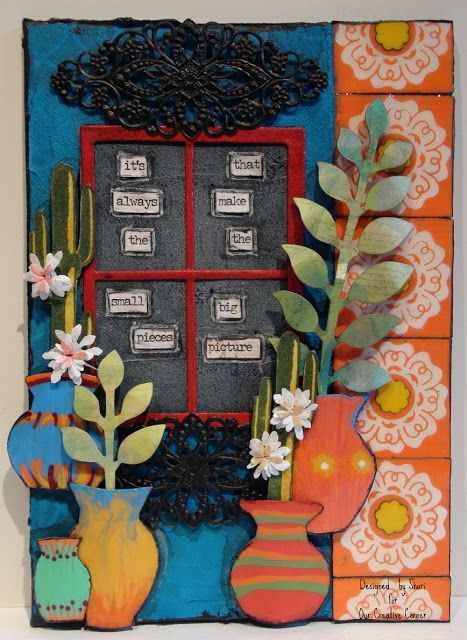 it's
always
the
small
pieces
that
make
the
big
picture
Designed by Shari
for
Our Creative Corner